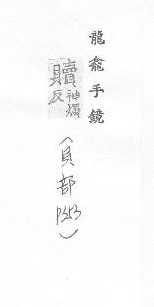 龍龕手鏡
贖神燭反
（貝部
P353）